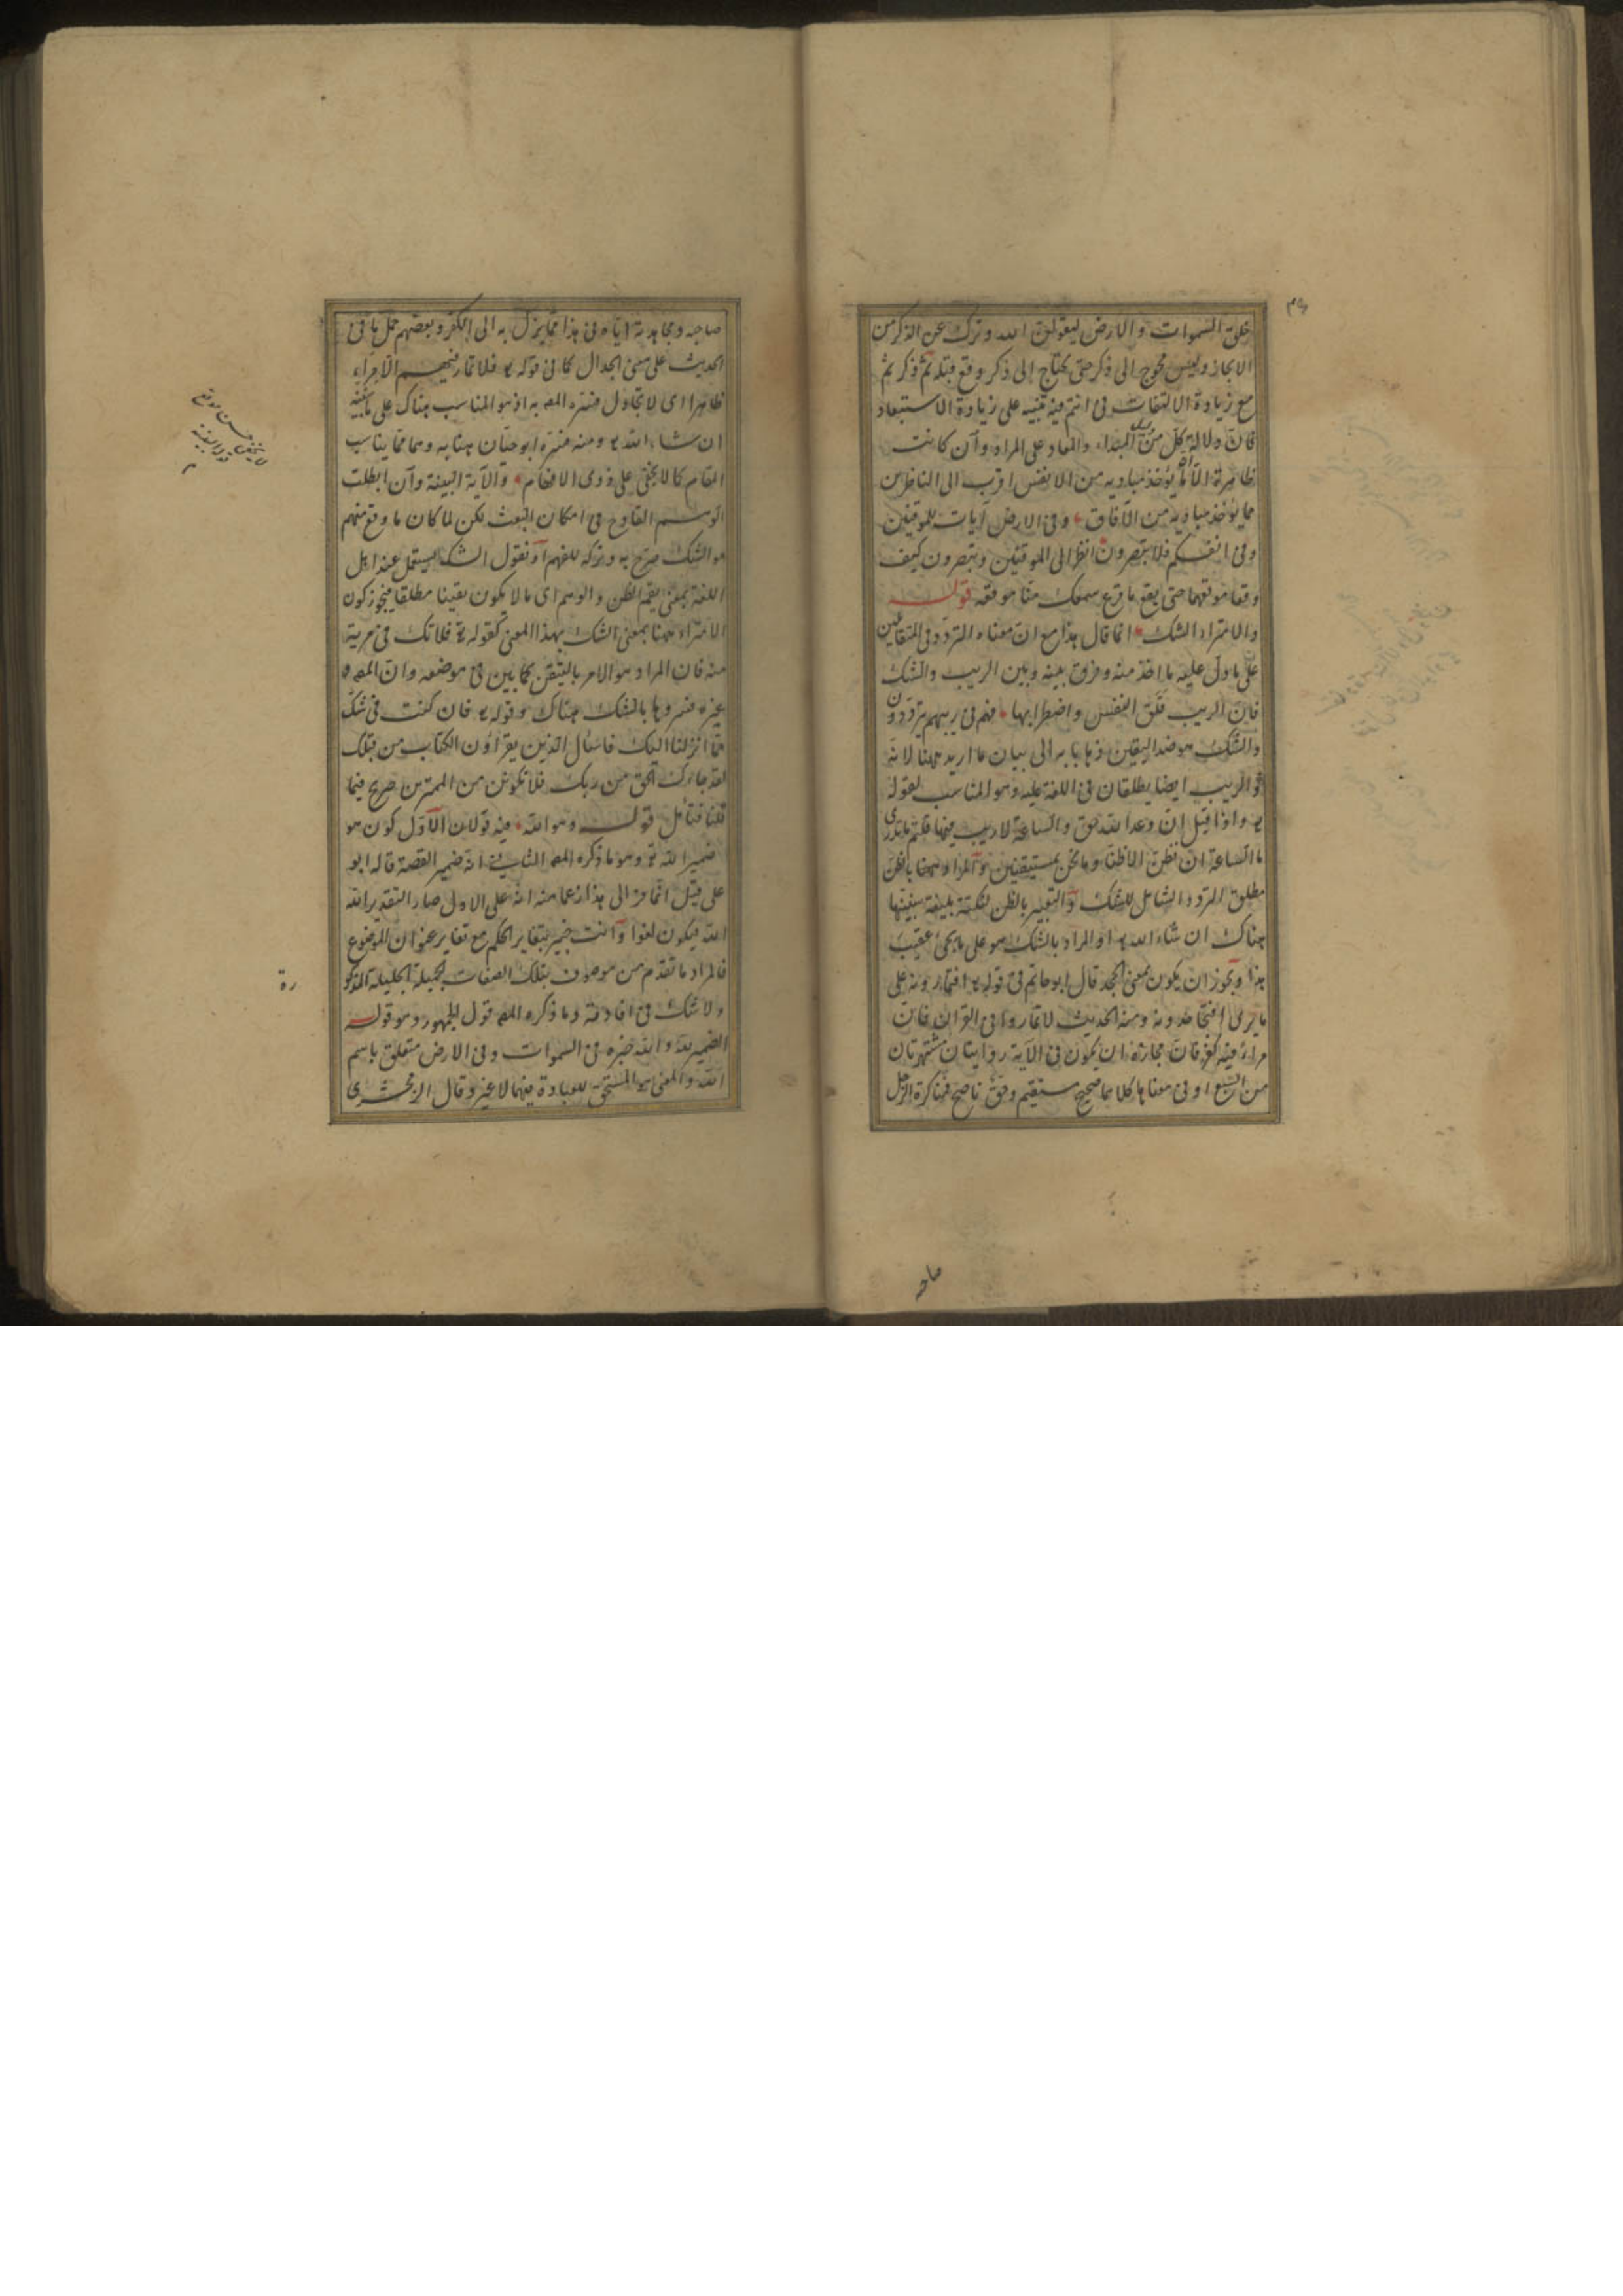 خلق السموات والارض ليقولن الله وترك عن الذكر من
الايجاز وليس محوج الى ذكر حتى يحتاج الى ذكر وقع قبله ثم ذكر ثم
مع زيادة الالتفات في انتم فيه تنبيه على زيادة الاستبعاد
فان دلالة كل من المبداء والمعاد على المراد وان كانت
ظاهرة الا ان ما يؤخذ مباديه من الانفس اقرب الى الناظرين
مما يؤخذ مباديه من الآفاق وفي الارض آيات للموقنين
وفي انفسكم افلا تبصرون انظر الى الموقنين وتبصرون كيف
وقعا موقعهما حتى يقع ما قرع سمعك منا موقعه قوله
والامتراء الشك انما قال هذا مع ان معناه التردد في المتقابلين
على ما دل عليه ما اخذ منه وفرق بينه وبين الريب والشك
فان الريب قلق النفس واضطرابها فهم في ريبهم يترددون
والشك هو ضد اليقين ذهابا به الى بيان ما اريد ههنا لانه
والريب ايضا يطلقان في اللغة عليه وهو المناسب لقوله
تع واذا قيل ان وعد الله حق والساعة لا ريب فيها قلتم ما ندري
ما الساعة ان نظن الا ظنا وما نحن بمستيقنين والمراد ههنا بالظن
مطلق التردد الشامل للشك والتعبير بالظن لنكتة بليغة سنبينها
هناك ان شاء الله تع او المراد بالشك هو على ما يجئ عقيب
هذا ويجوز ان يكون بمعنى الجحد قال ابو حاتم في قوله تع افتمارونه على
ما يرى افتجاحدونه ومنه الحديث لا تماروا في القرآن فان
مراء فيه كفر فان مجازه ان يكون في الآية روايتان مشتهرتان
من السبع او في معناها كلاهما صحيح مستقيم وحق ناصح فمناكرة الرجل
صاحبه
صاحبه ومجاهدته اياه في هذا مما يزل به الى الكفر وبعضهم حمل ما في
الحديث على معنى الجدال كما في قوله تع فلا تمار فيهم الا مراء
ظاهرا اى لا تجادل فسره المص به اذ هو المناسب هناك على ما نبينه
ان شاء الله تع ومنه فسره ابو حيان هنا به وهما مما يناسب
المقام كما لا يخفى على ذوى الافهام والآية البينة وان ابطلت
الوهم القادح في امكان البعث لكن لما كان ما وقع منهم
هو الشك صرح به وتركه للفهم او نقول الشك يستعمل عند اهل
اللغة بمعنى يعم الظن والوهم اى ما لا يكون يقينا مطلقا فيجوز كون
الامتراء ههنا بمعنى الشك بهذا المعنى كقوله تع فلا تك في مرية
منه فان المراد هو الامر باليقين كما بين في موضعه وان المص
وغيره فسروها بالشك هناك وقوله تع فان كنت في شك
مما انزلنا اليك فاسئال الذين يقرأون الكتاب من قبلك
لقد جاءك الحق من ربك فلا تكونن من الممترين صريح فيما
قلنا فتأمل قوله وهو الله فيه قولان الاول كون هو
ضمير الله تع وهو ما ذكره المص الثاني انه ضمير القصة قاله ابو
على قيل انما فر الى هذا زعما منه انه على الاول صار التقدير الله
الله فيكون لغوا وانت خبير بتغاير الحكم مع تغاير عنوان الموضوع
فالمراد ما تقدم من موصوف بتلك الصفات الجميلة الجليلة المذكورة
ولا شك في افادته وما ذكره المص قول الجمهور وهو قوله
الضمير لله والله خبره في السموات وفي الارض متعلق باسم
الله والمعنى هو المستحق للعبادة فيهما لا غير وقال الزمخشرى
لا يخفى حسن موقع
قوله البينة
م